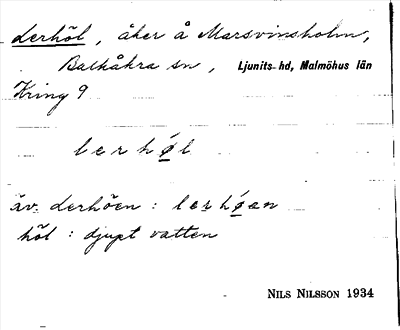 Lerhöl, åker å Marsvinsholm,
Balkåkra sn, Ljunits hd, Malmöhus län
Kring 9
lerhøl
äv. Lerhöen: lerhøan
höl: djupt vatten
NILS NILSSON 1934